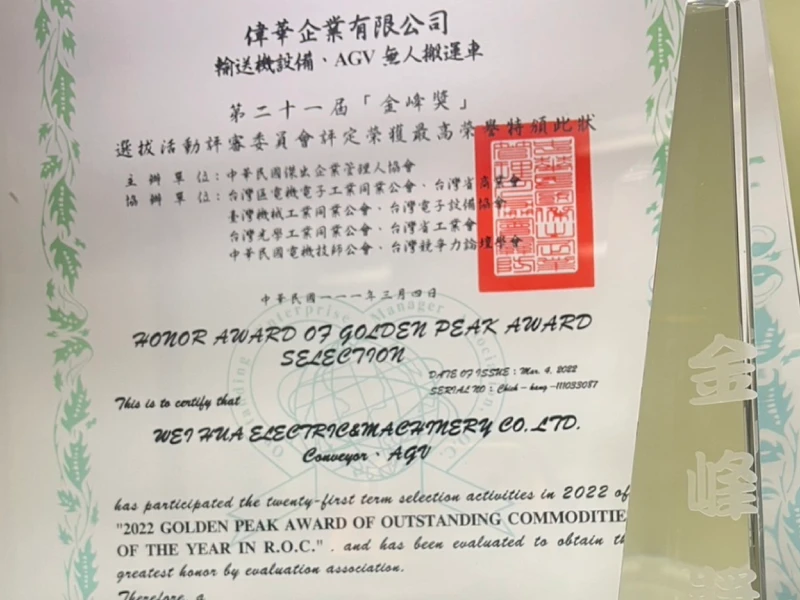 偉華企業有限公司
輸送機設備、AGV 無人搬運車
第二十一屆「金峰獎」
選拔活動評審委員會評定榮獲最高榮譽特頒此狀
主辦單位:中華民國傑出企業管理人協會
協辦單位:台灣區電機電子工業同業公會、台灣省商業會
臺灣機械工業同業公會、台灣電子設備協會
台灣光學工業同業公會、台灣省工業會
中華民國電機技師公會、台灣競爭力論壇學會
中華民國一一一年三月四日
HONOR AWARD OF GOLDEN PEAK AWARD
SELECTION
DATE OF ISSUE : Mar. 4. 2022
SERIAL NO : Chieh - hang -111033087
This is to certify that
WEI HUA ELECTRIC&MACHINERY CO.,LTD.
Conveyor、AGV
has participated the twenty-first term selection activities in 2022 of
"2022 GOLDEN PEAK AWARD OF OUTSTANDING COMMODITIE
OF THE YEAR IN R.O.C." . and has been evaluated to obtain th
greatest honor by evaluation association.
Therefore, a
金峰獎